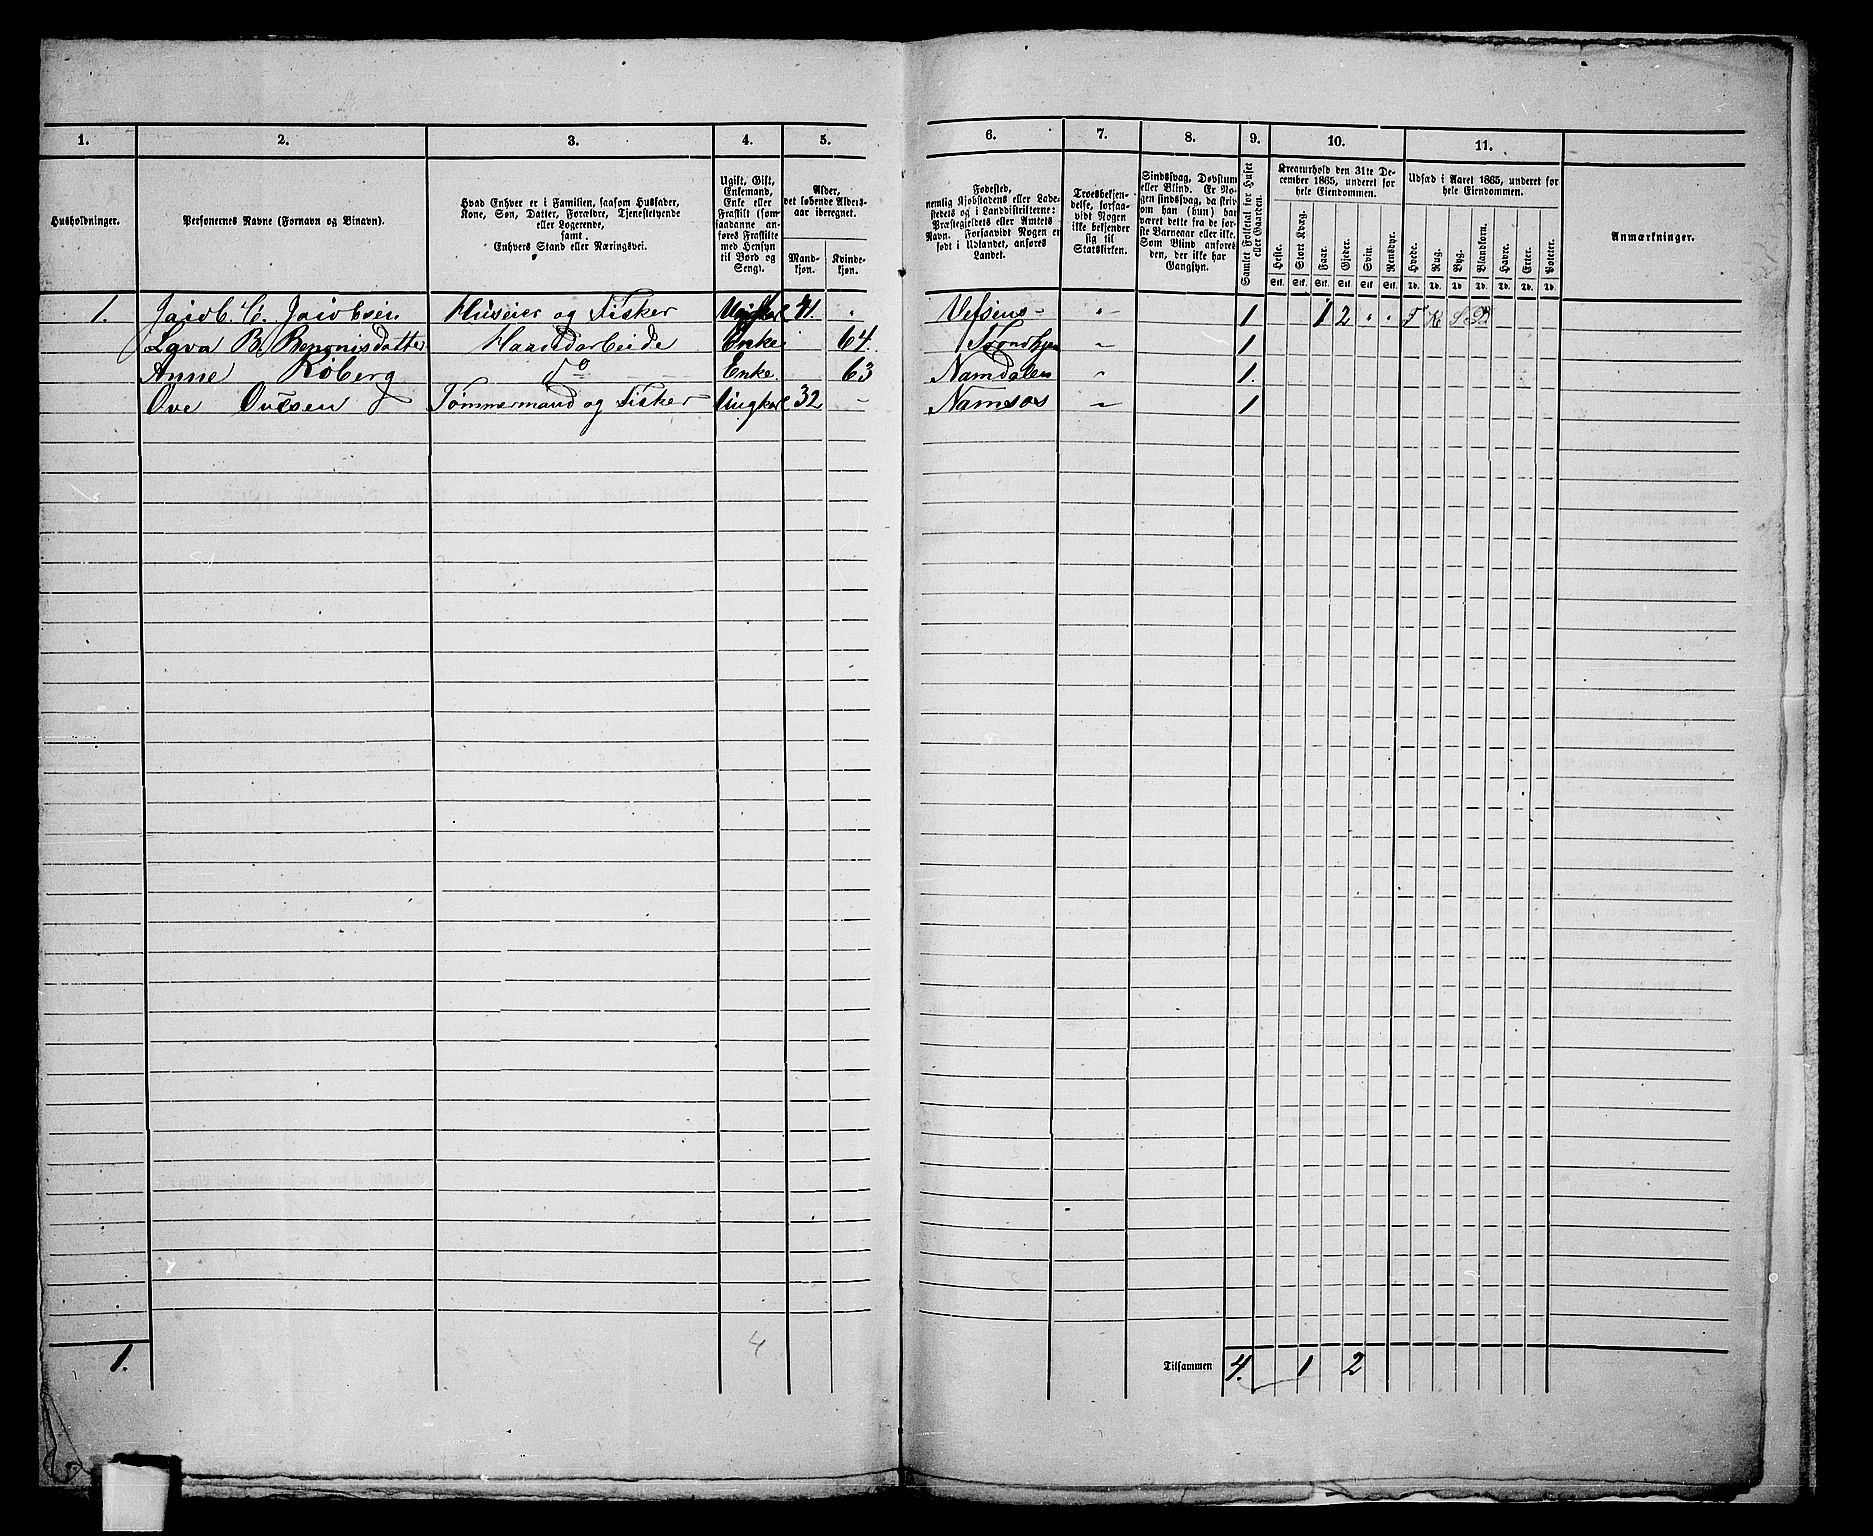 1. 2. 3. 4. 5. 6. 7. 8. 9. 10. 11.
Husholdninger.
Personernes Navne (Fornavn og Binavn).
Hvad Enhver er i Familien, saasom Husfader,
Kone, Søn, Datter, Forældre, Tjenestetyende
eller Logerende,
samt
Enhvers Stand eller Næringsvei.
Ugift, Gift,
Enkemand,
Enke eller
Fraskilt (som
saadanne an-
føres Fraskilte
med Hensyn
til Bord og
Seng).
Alder,
det løbende Alders-
aar iberegnet.
Mand-
kjøn.
Kvinde-
kjøn.
Fødested,
nemlig Kjøbstadens eller Lade-
stedets og i Landdistrikterne:
Præstegjeldets eller Amtets
Navn. Forsaavidt Nogen er
født i Udlandet, anføres
Landet.
Troesbekjen-
delse, forsaa-
vidt Nogen
ikke bekjender
sig til
Statskirken.
Sindssvag, Døvstum
eller Blind. Er No-
gen sindssvag, da skriv
om han (hun) har
været dette fra de før-
ste Barneaar eller ikke.
Som Blind anføres
den, der ikke har
Gangsyn.
Samlet Folketal for Huset
eller Gaarden.
Kreaturhold den 31te De-
cember 1865, underet for
hele Eiendommen.
Heste.
Stort Kvæg.
Faar.
Gjeder.
Svin.
Rensdyr.
Stk. Stk. Stk. Stk. Stk. Stk.
Udsæd i Aaret 1865, underet for
hele Eiendommen.
Hvede.
Rug.
Byg.
Blandkorn.
Havre.
Erter.
Poteter.
Td. Td. Td. Td. Td. Td. Td.
Anmærkninger.
1. Jacob C. Jacobsen Huseier og Fisker Ungkarl 41. " Vefsens " 1 1 2 " "
B. Benonisdatter Haandarbeide Enke 64. Trondhjem " 1
Anne Roberg Do Enke. 63 Namdalen " 1.
Ove Ovesen Tømmermand og Fisker Ungkarl 32 " Namsos " 1
1. 4 Tilsammen 4. 1 2